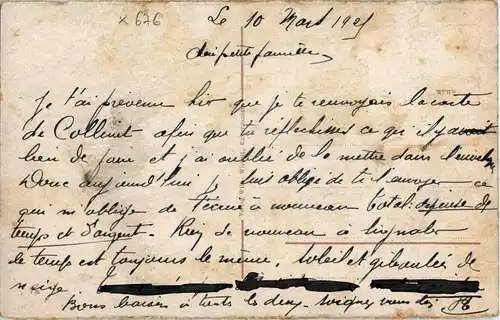 x 676
Le 10 Mars 192
chère petite famille,
Je t'ai prévenu hier que je te renvoyais la carte
de Collinet afin que tu réfléchisses ce qui il y avait
lieu de faire et j'ai oublié de la mettre dans l'enveloppe
Donc aujourd'hui je suis obligé de te l'envoyer ce
qui m'oblige de t'écrire à nouveau total: dépense de
temps et d'argent. Rien de nouveau à signaler
le temps est toujours le même, soleil et giboulées de
neige
Bons baisers à toutes les deux. Soignez vous